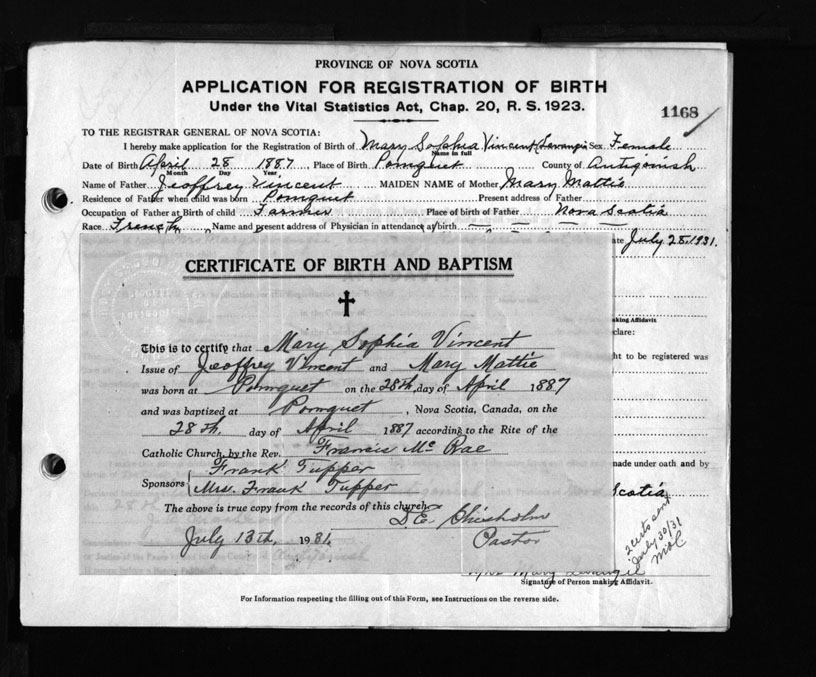 PROVINCE OF NOVA SCOTIA
APPLICATION FOR REGISTRATION OF BIRTH
Under the Vital Statistics Act, Chap. 20, R. S. 1923.
1168
TO THE REGISTRAR GENERAL OF NOVA SCOTIA:
I hereby make application for the Registration of Birth of Mary Sophia Vincent Sex Female
Name in full
Date of Birth April 28 1887 Place of Birth Pomquet County of Antigonish
Month Day Year
Name of Father Jeoffrey Vincent MAIDEN NAME of Mother Mary Mattie
Residence of Father when child was born Pomquet Present address of Father
Occupation of Father at Birth of child Farmer Place of birth of Father Nova Scotia
Race French Name and present address of Physician in attendance at birth — — — —
July 28, 1931.
CERTIFICATE OF BIRTH AND BAPTISM
This is to certify that Mary Sophia Vincent
Issue of Jeoffrey Vincent and Mary Mattie
was born at Pomquet on the 28th. day of April 1887
and was baptized at Pomquet, Nova Scotia, Canada, on the
28th. day of April 1887 according to the Rite of the
Catholic Church, by the Rev. Francis McRae
Sponsors { Frank Tupper
Mrs. Frank Tupper
The above is true copy from the records of this church
D.E. Chisholm
July 13th, 1931. Pastor
making Affidavit
ht to be registered was
made under oath and by
Scotia
July 30/31
Signature of Person making Affidavit.
For Information respecting the filling out of this Form, see Instructions on the reverse side.